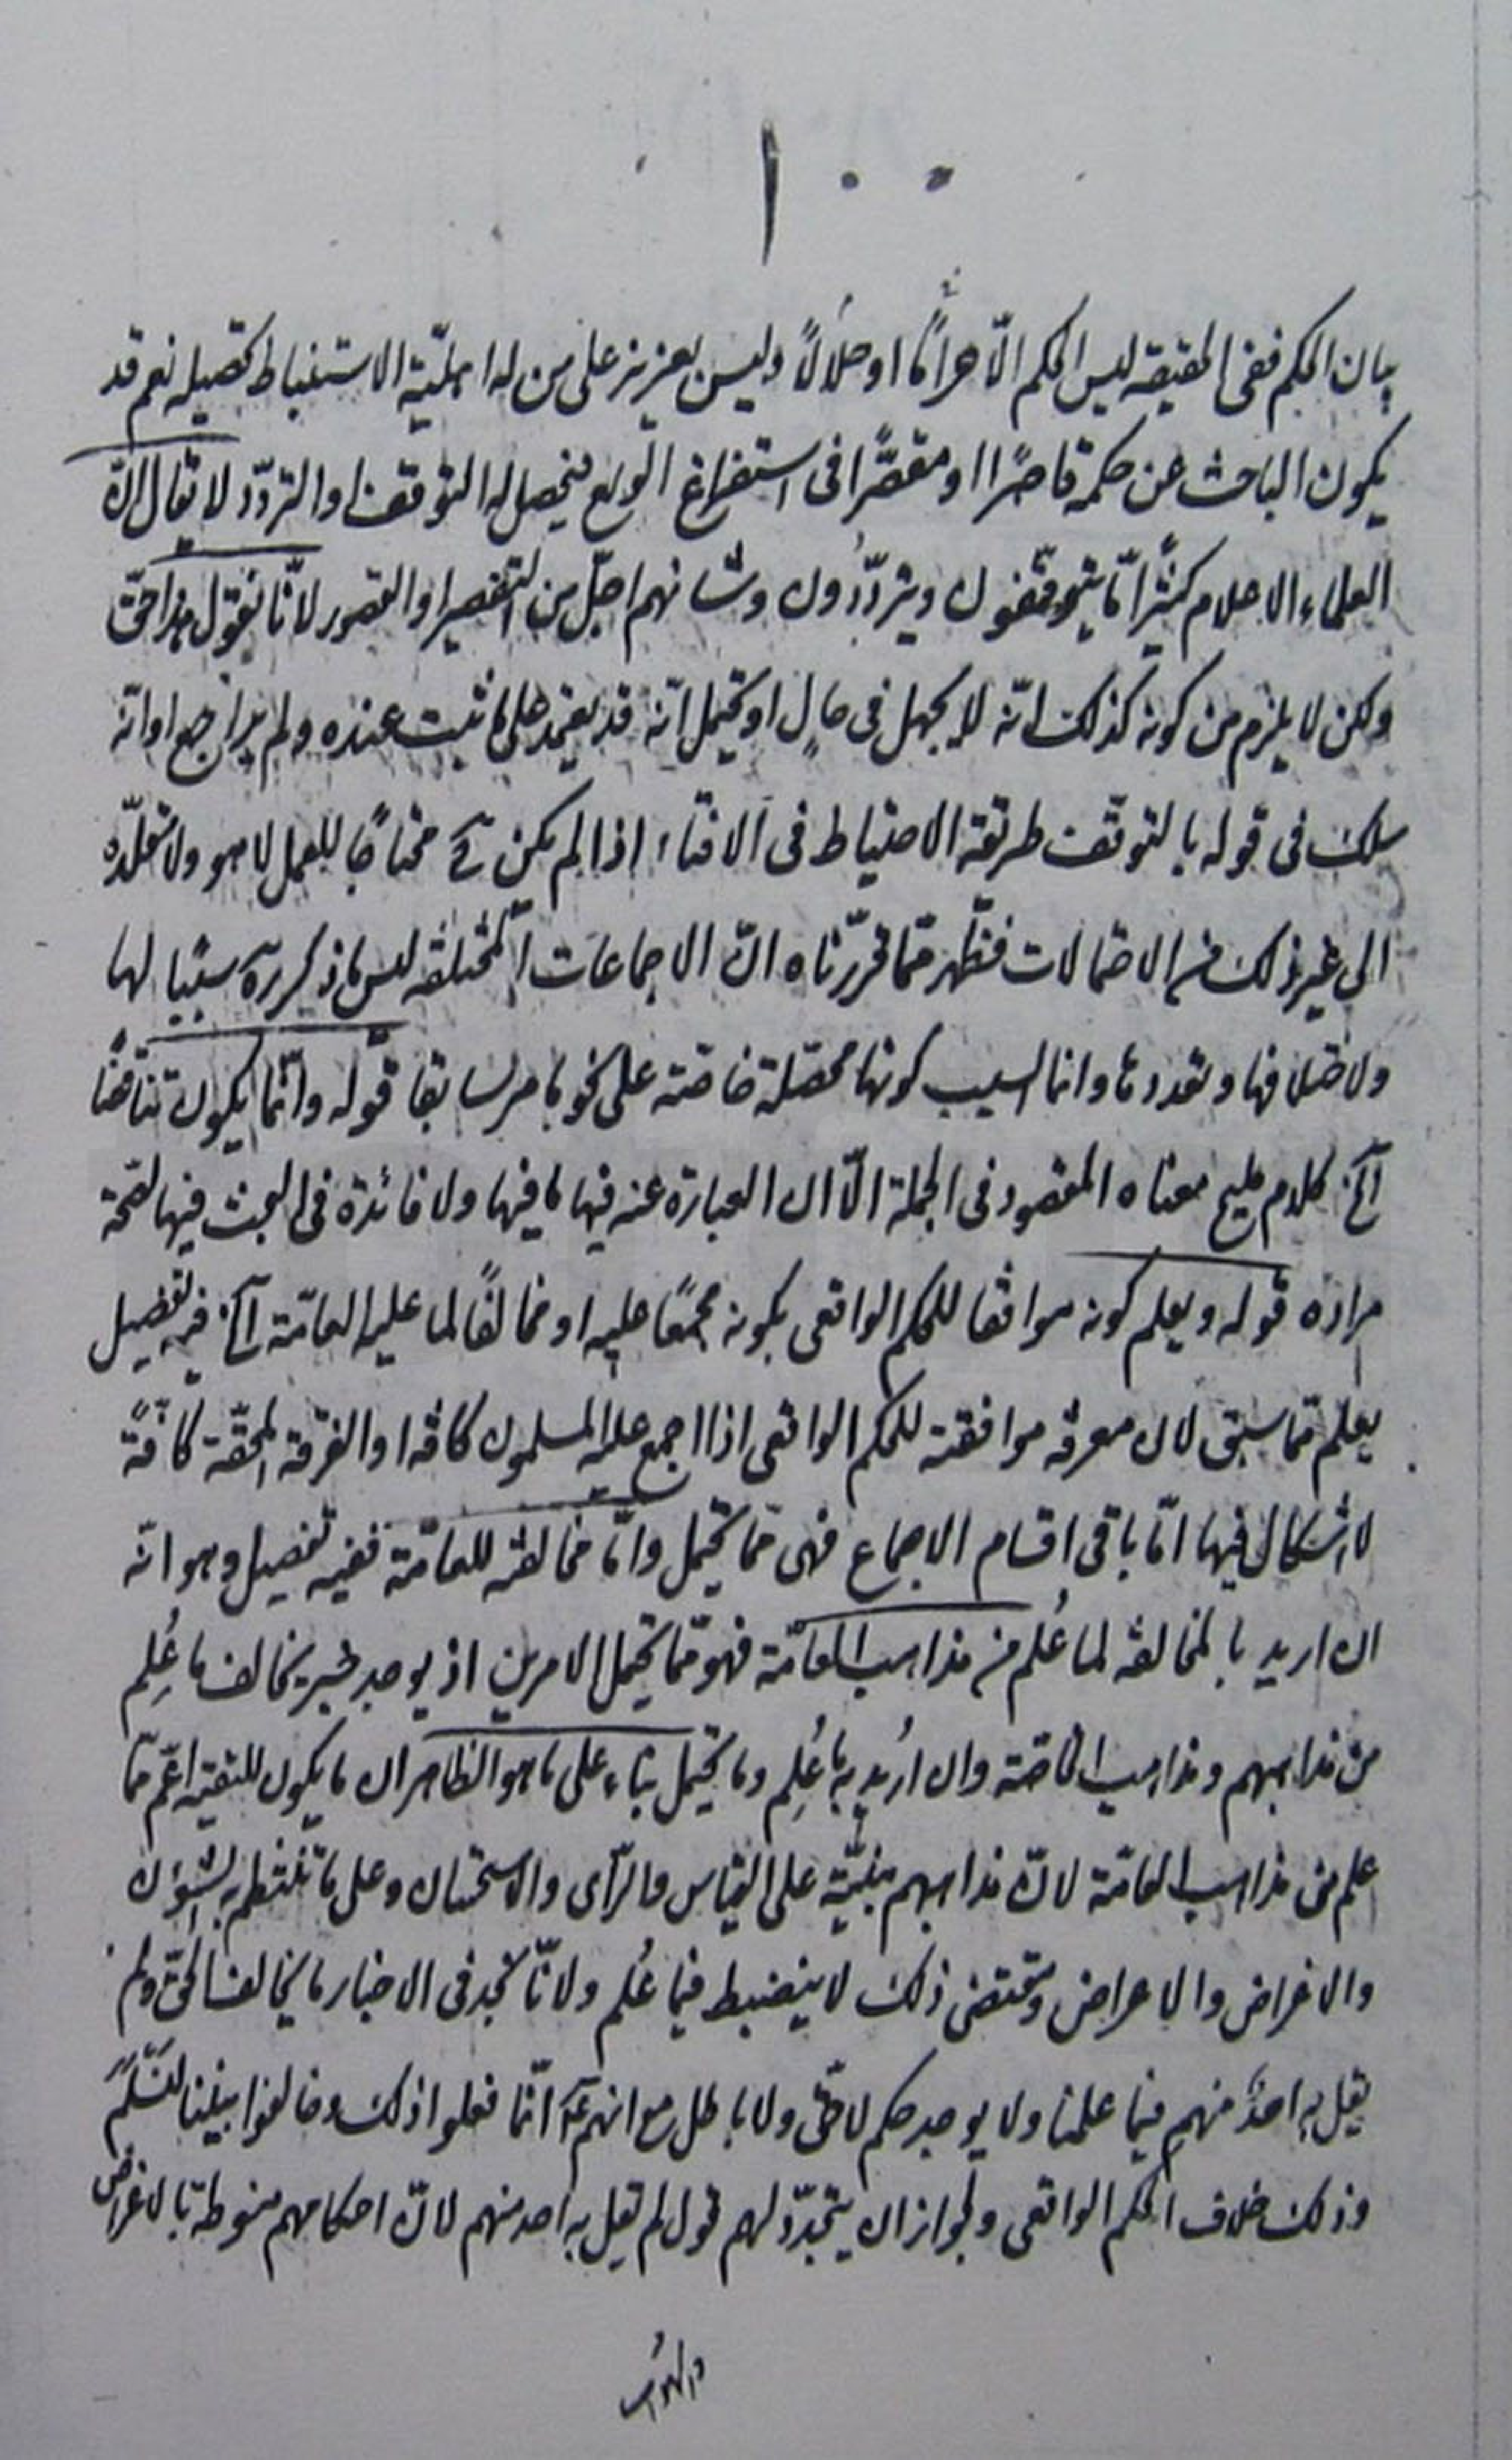 ١٠٠
بيان الحكم ففى الحقيقه ليس الحكم الّا حرامًا او حلالًا وليس بعزيز على من له اهليّة الاستنباط تحصيله نعم قد
يكون الباحث عن حكمه قاصرًا او مقصّرًا فى استفراغ الوسع فيحصل له التوقف او التردّد لا يقال انّ
العلماء الاعلام كثيرًا مّا يتوقّفون ويتردّدون وشانهم اجلّ من التقصير او القصور لانّا نقول هذا حق
ولكن لا يلزم من كونه كذلك انّه لا يجهل فى حالٍ او يحتمل انّه قد يعتمد على ما ثبت عنده ولم يراجع او انّه
سلك فى قوله بالتوقّف طريقة الاحتياط فى الافتاء اذا لم يكن ح محتاجًا للعمل لا هو ولا مقلّده
الى غير ذلك من الاحتمالات فظهر ممّا قرّرناه انّ الاجماعات المختلفه ليس ما ذكره سببًا لها
ولاختلافها وتعددها وانما السبب كونها محصّلة خاصّة على نحو ما مر سابقا قوله وانّما يكون تناقضًا
آلخ كلام مليح معناه المقصود فى الجملة الّا ان العبارة عنه فيها ما فيها ولا فائدة فى البحث فيها لصحّة
مراده قوله ويعلم كونه موافقا للحكم الواقعى بكونه مجمعًا عليه او مخالفًا لما عليه العامّة آلخ فيه تفصيل
يعلم ممّا سبق لان معرفه موافقته للحكم الواقعى اذا اجمع عليه المسلمون كافه او الفرقة المحقّة كافّةً
لا اشكال فيها امّا باقى اقسام الاجماع فهى ممّا يحتمل وامّا مخالفته للعامّة ففيه تفصيل وهو انّه
ان اريد بالمخالفه لما عُلم من مذاهب العامّة فهو ممّا يحتمل الامرين اذ يوجد خبر يخالف ما عُلِم
من مذاهبهم ومذاهب الخاصّة وان اُريد به ما عُلِم وما يحتمل بناء على ما هو الظاهر ان ما يكون للتقيّه اعمّ ممّا
علم من مذاهب العامّة لانّ مذاهبهم مبنيّة على القياس والرّأى والاستحسان وعلى ما تنتظم به الشؤن
والاغراض والاعراض ومقتضى ذلك لا ينضبط فيما عُلم ولانّا نجد فى الاخبار ما يخالف الحقّ ولم
يقل به احدٌ منهم فيما علمنا ولا يوجد حكم لا حقّ ولا باطل مع انهم ع انّما فعلوا ذلك وخالفوا بيننا لنَسْلَم
وذلك خلاف الحكم الواقعى ولجواز ان يتجدّد لهم قول لم يقل به احد منهم لانّ احكامهم منوطة بالاغراض